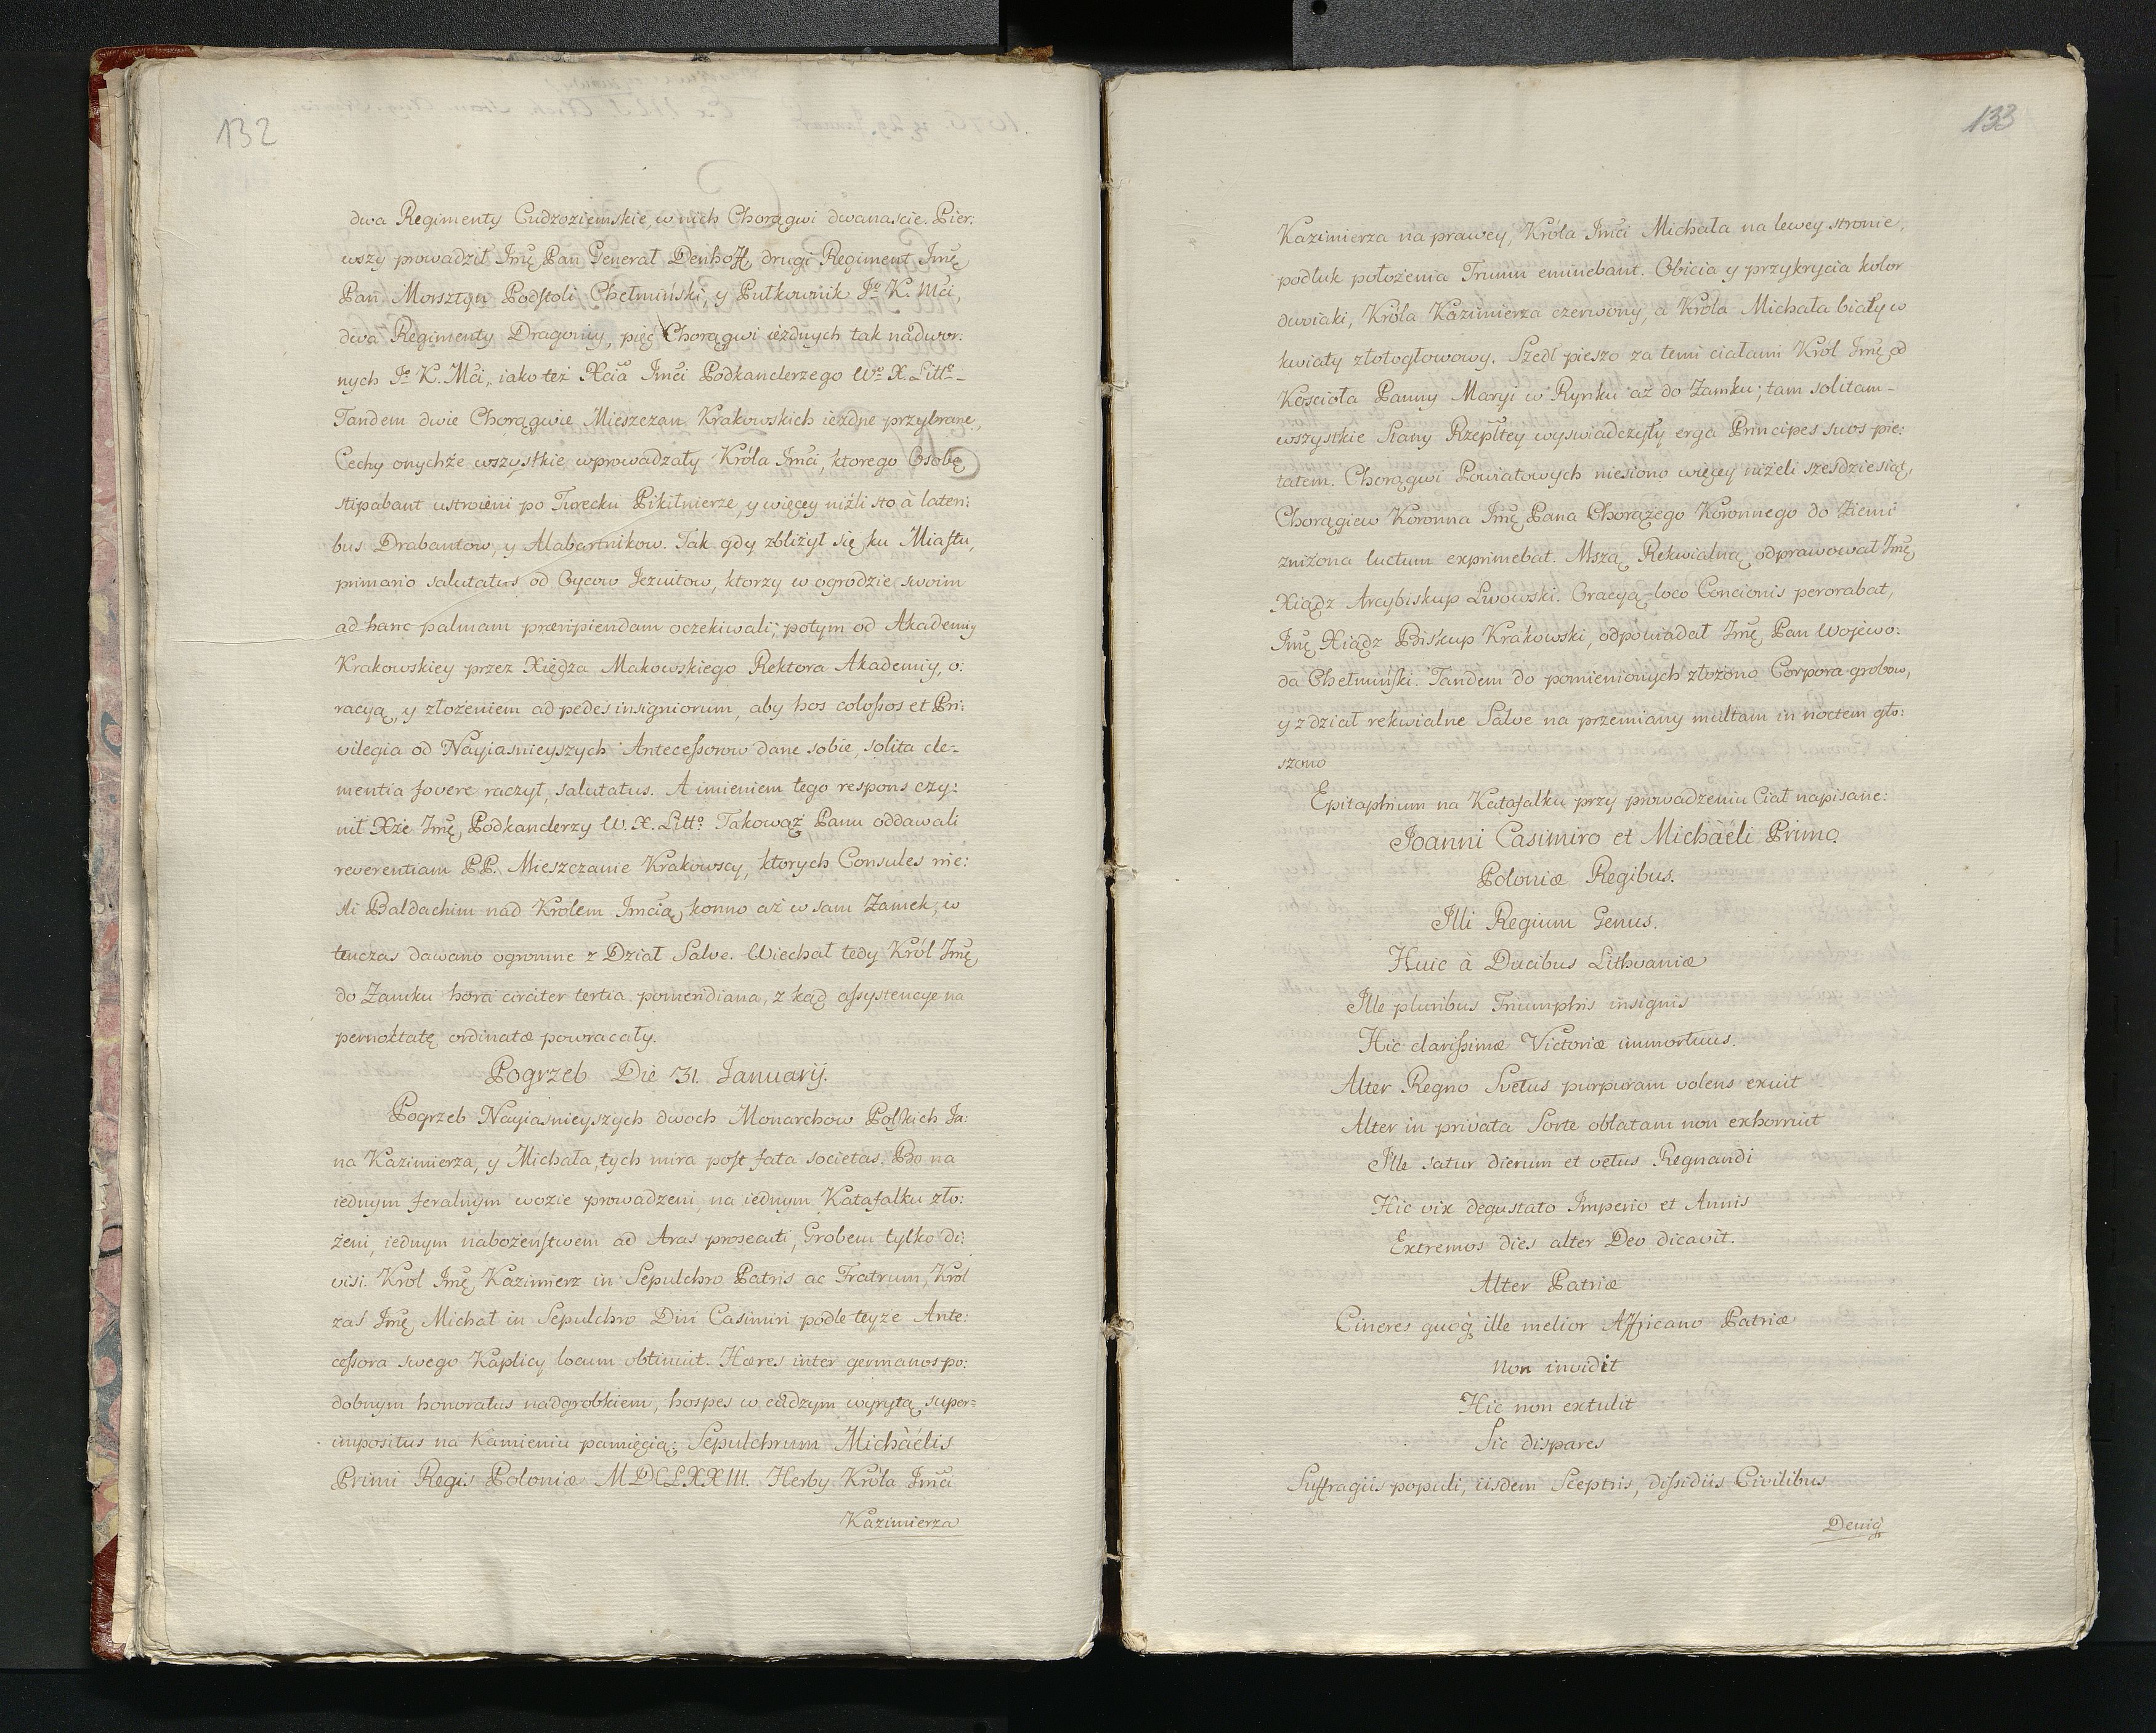 132
dwa Regimenty Cudzoziemskie, w nich Chorągwi dwanascie. Pier:
wszy prowadził Jmę Pan Generał Denhoff drugi Regiment Jmę
Pan Morsztyn Podstoli Chełmiński, y Pułkownik Jo K. Mci,
dwa Regimenty Dragonny, pięć Chorągwi ieżdnych tak nadwor:
nych Jo K. Mci, iako też Xcia Jmci Podkanclerzego Wo X. Litto
Tandem dwie Chorągwie Mieszczan Krakowskich iezdne przybrane,
Cechy onychże wszystkie wprowadzały Króla Jmci, ktorego Osobę
stipabant ustroieni po Turecku Pikilnierze, y więcey niźli sto à lateri:
bus Drabantow, y Alabartnikow. Tak gdy zbliżył się ku Miastu,
primario salutatus od Oycow Jezuitow, ktorzy w ogrodzie swoim
ad hanc palmam præripiendam oczekiwali; potym od Akademiy
Krakowskiey przez Xiędza Makowskiego Rektora Akademiy, o:
racyą, y złożeniem ad pedes insigniorum, aby hos colossos et Pri:
vilegia od Nayiasnieyszych Antecessorow dane sobie, solita cle-
mentia fovere raczył, salutatus. A imieniem tego respons czy:
nił Xże Jmę Podkanclerzy W. X. Litto Takowąż Panu oddawali
reverentiam PP. Mieszczanie Krakowscy, ktorych Consules nie:
śli Baldachim nad Krolem Jmcią konno aż w sam Zamek, w
tenczas dawano ogromne z Dział Salve. Wiechał tedy Król Jmę
do Zamku hora circiter tertia pomeridiana, z kąd assystencye na
pernoktatę ordinatæ powracały.
Pogrzeb Die 31. Januarij.
Pogrzeb Nayiasnieyszych dwoch Monarchow Polskich Ja:
na Kazimierza, y Michała, tych mira post fata societas. Bo na
iednym feralnym wozie prowadzeni, na iednym Katafalku zło:
żeni, iednym nabożeństwem ad Aras prosecuti, Grobem tylko di:
visi. Krol Jmę Kazimierz in Sepulchro Patris ac Fratrum, Krol
zaś Jmę Michał in Sepulchro Divi Casimiri podle teyże Ante:
cessora swego Kaplicy locum obtinuit. Hæres inter germanos po:
dobnym honoratus nadgrobkiem, hospes w cudzym wyrytą super=
impositus na Kamieniu pamięcią; Sepulchrum Michàélis
Primi Regis Poloniæ MDCLXXIII. Herby Króla Jmci
Kazimierza
133
Kazimierza na prawey, Króla Jmci Michała na lewey stronie,
podług położenia Trumn eminebant. Obicia y przykrycia kolor
dwoiaki, Króla Kazimierza czerwony, a Króla Michała biały w
kwiaty złotogłowowy. Szedł pieszo za temi ciałami Król Jmę od
Kościoła Panny Maryi w Rynku aż do Zamku; tam solitam
wszystkie Stany Rzepltey wyswiadczyły erga Principes suos pie:
tatem. Chorągwi Powiatowych niesiono więcey niżeli szesdziesiąt,
Chorągiew Koronna Jmę Pana Chorążego Koronnego do Ziemi
zniżona luctum exprimebat. Mszą Rekwialną odprawował Jmę
Xiądz Arcybiskup Lwowski. Oracyą loco Concionis perorabat,
Jmę Xiądz Biskup Krakowski, odpowiadał Jmę Pan Wojewo:
da Chełmiński. Tandem do pomienionych złożono Corpora grobow,
y z dział rekwialne Salve na przemiany multam in noctem gło:
szono
Epitaphium na Katafalku przy prowadzeniu Ciał napisane:
Joanni Casimiro et Michàéli Primo
Poloniæ Regibus.
Illi Regium Genus.
Huic à Ducibus Lithvaniæ
Ille pluribus Triumphis insignis
Hic clarissimæ Victoriæ immortuus.
Alter Regno Svetus purpuram volens exuit
Alter in privata Sorte oblatam non exhorruit
Ille satur dierum et vetus Regnandi
Hic vix degustato Imperio et Annis
Extremos dies alter Deo dicavit.
Alter Patriæ
Cineres quoq; ille melior Affricano Patriæ
Non invidit
Hic non extulit
Sic dispares
Suffragiis populi, iisdem Sceptris, dissidiis Civilibus
Deniq;